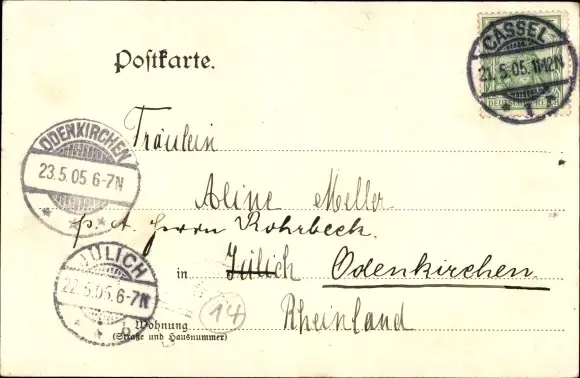 Postkarte.
CASSEL
21.5.05.11-12N
* 1 r
DEUTSCHES REICH
Fräulein
ODENKIRCHEN
23.5.05 6-7N
* *
Aline Meller
p. A. Herrn Rohrbeck.
JÜLICH
22.5.05.6-7N
* * b
in Jülich Odenkirchen
14
Rheinland
Wohnung
(Straße und Hausnummer)